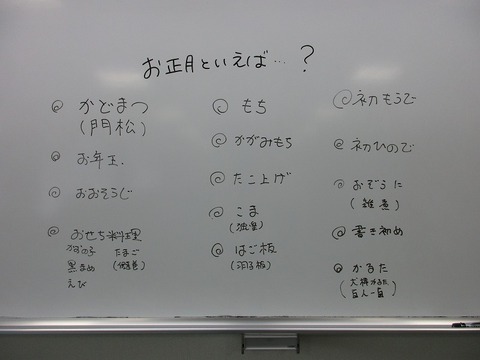 お正月といえば…？
◎ かどまつ
(門松)
◎ お年玉
◎ おおそうじ
◎ おせち料理
かずの子 たまご
黒まめ (伊達巻)
えび
◎ もち
◎ かがみもち
◎ たこ上げ
◎ こま
(独楽)
◎ はご板
(羽子板)
◎ 初もうで
◎ 初ひので
◎ おぞうに
(雑煮)
◎ 書き初め
◎ かるた
(犬棒かるた
百人一首)